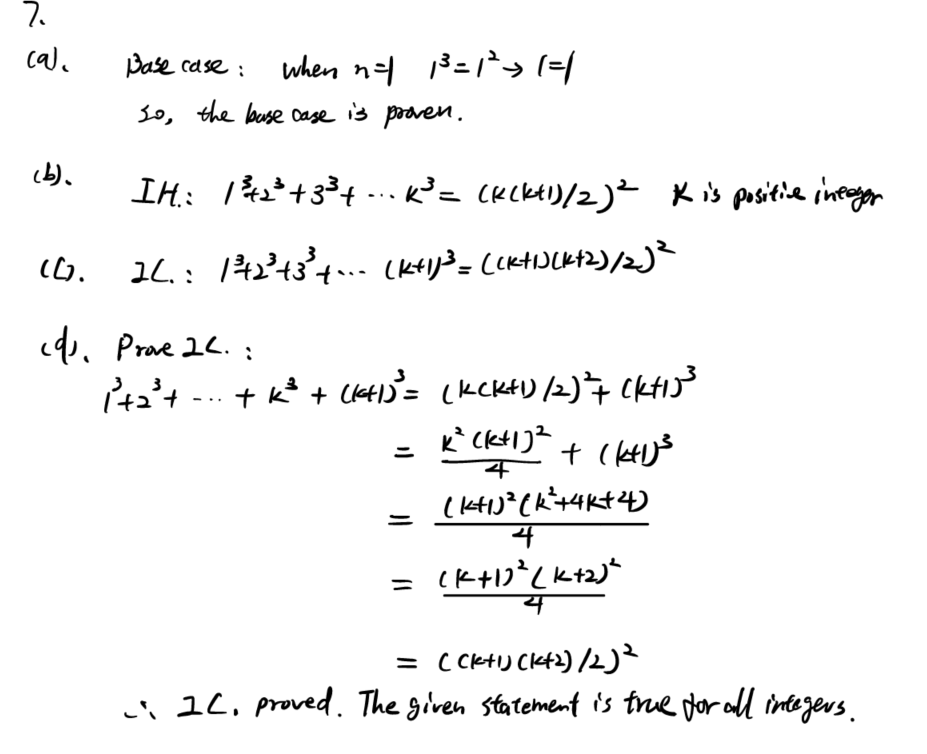 7.
(a). Base case: when n=1 1³=1² → 1=1
so, the base case is proven.
(b). IH.: 1³+2³+3³+ ... k³ = (k(k+1)/2)² k is positive integer
(c). IC.: 1³+2³+3³+... (k+1)³ = ((k+1)(k+2)/2)²
(d). Prove IC.:
1³+2³+ ... + k³ + (k+1)³ = (k(k+1)/2)² + (k+1)³
= k²(k+1)²/4 + (k+1)³
= (k+1)²(k²+4k+4)/4
= (k+1)²(k+2)²/4
= ((k+1)(k+2)/2)²
∴ IC. proved. The given statement is true for all integers.